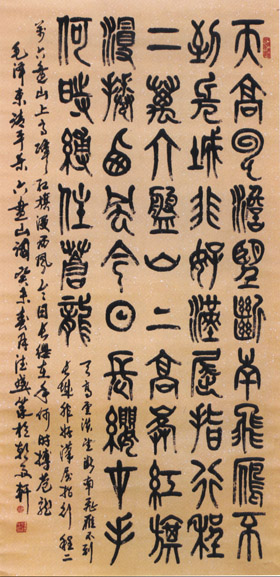 天高云澹望斷南飛鴈不
到長城非好漢屈指行程
二萬六盤山上高峯紅旗
漫捲西風今日長纓在手
何時縛住蒼龍
天高雲淡望斷南飛雁不到
長城非好漢屈指行程二
萬六盘山上高峰红旗漫西風今日長缨在手何時縛苍龍
毛澤東清平樂六盘山詞癸未春月